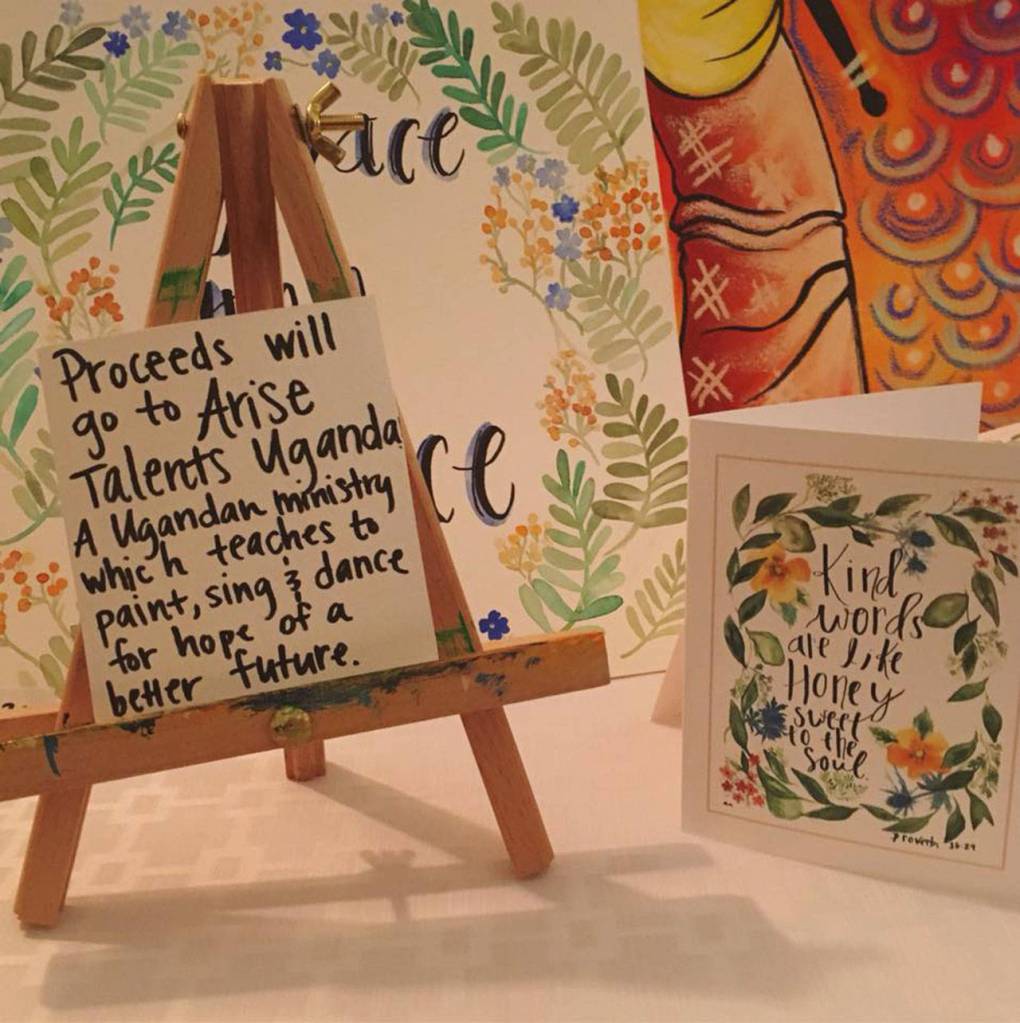 Proceeds will
go to Arise
Talents Uganda.
A Ugandan ministry
which teaches to
paint, sing & dance
for hope of a
better future.
Kind
words
are like
Honey
sweet
to the
soul.
Proverb